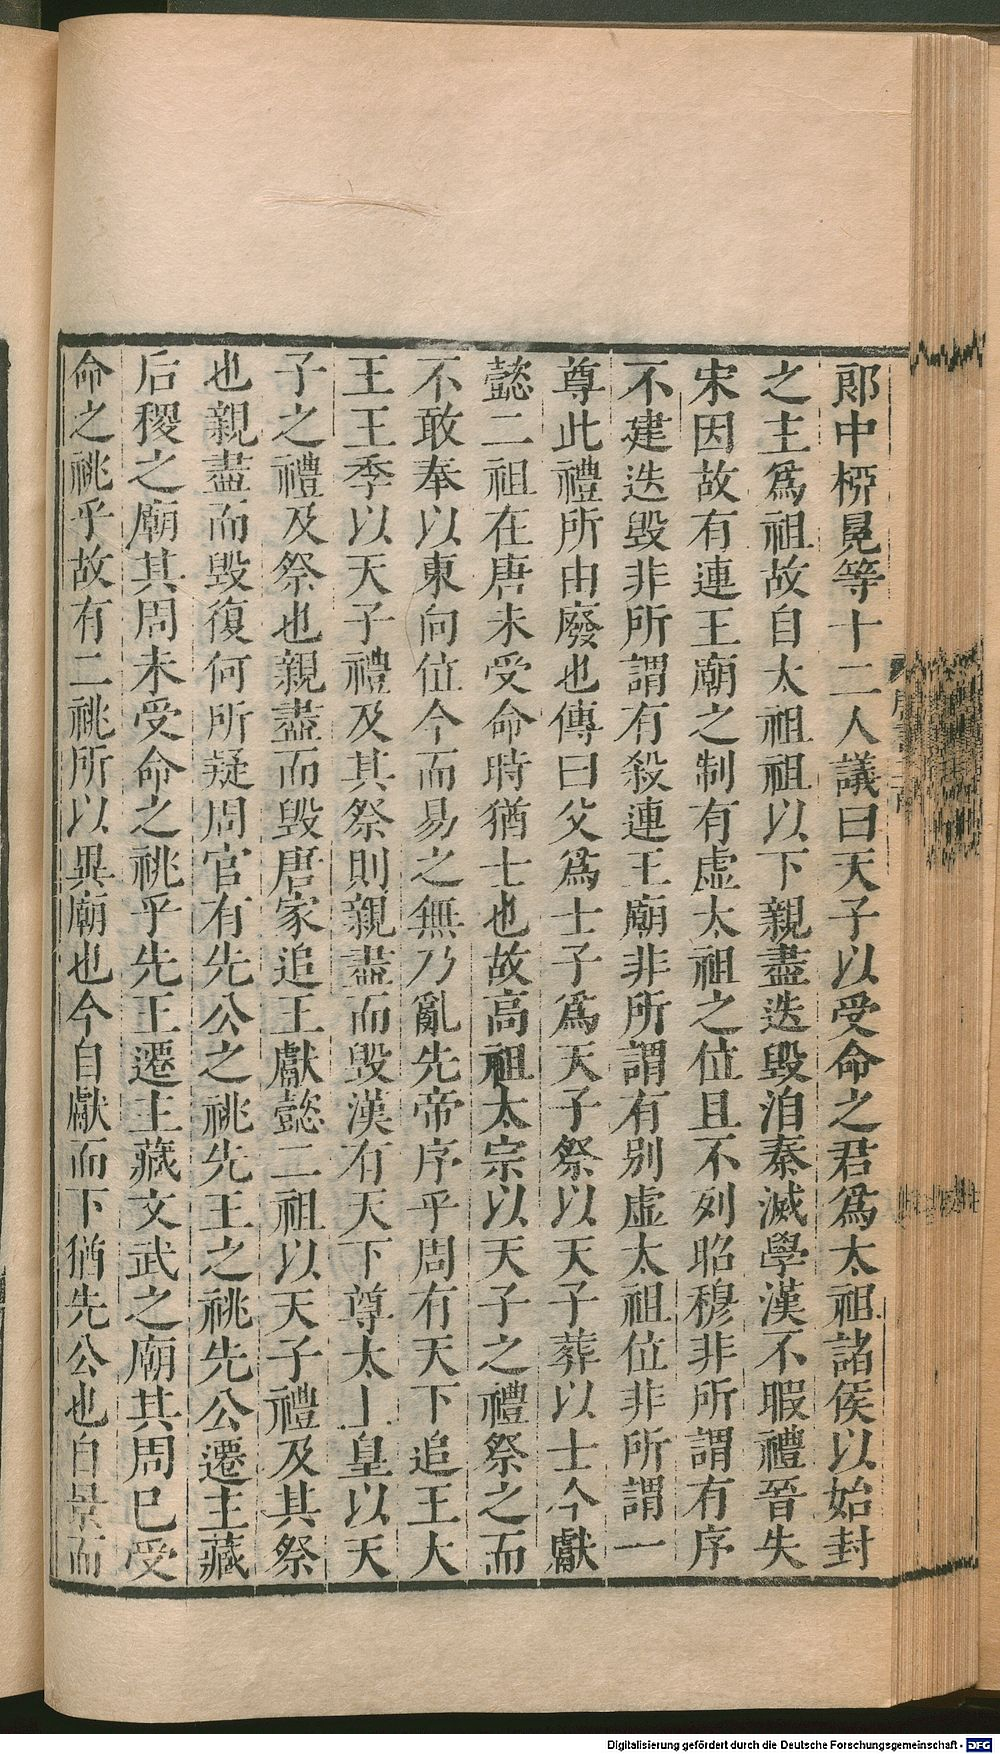 郎中柳冕等十二人議曰天子以受命之君爲太祖諸侯以始封
之主爲祖故自太祖祖以下親盡迭毀洎秦滅學漢不暇禮晉失
宋因故有連王廟之制有虛太祖之位且不列昭穆非所謂有序
不建迭毀非所謂有殺連王廟非所謂有別虛太祖位非所謂一
尊此禮所由廢也傳曰父爲士子爲天子祭以天子葬以士今獻
懿二祖在唐未受命時猶士也故高祖太宗以天子之禮祭之而
不敢奉以東向位今而易之無乃亂先帝序乎周有天下追王大
王王季以天子禮及其祭則親盡而毀漢有天下尊太上皇以天
子之禮及祭也親盡而毀唐家追王獻懿二祖以天子禮及其祭
也親盡而毀復何所疑周官有先公之祧先王之祧先公遷主藏
后稷之廟其周未受命之祧乎先王遷主藏文武之廟其周已受
命之祧乎故有二祧所以異廟也今自獻而下猶先公也自景而
Digitalisierung gefördert durch die Deutsche Forschungsgemeinschaft - DFG